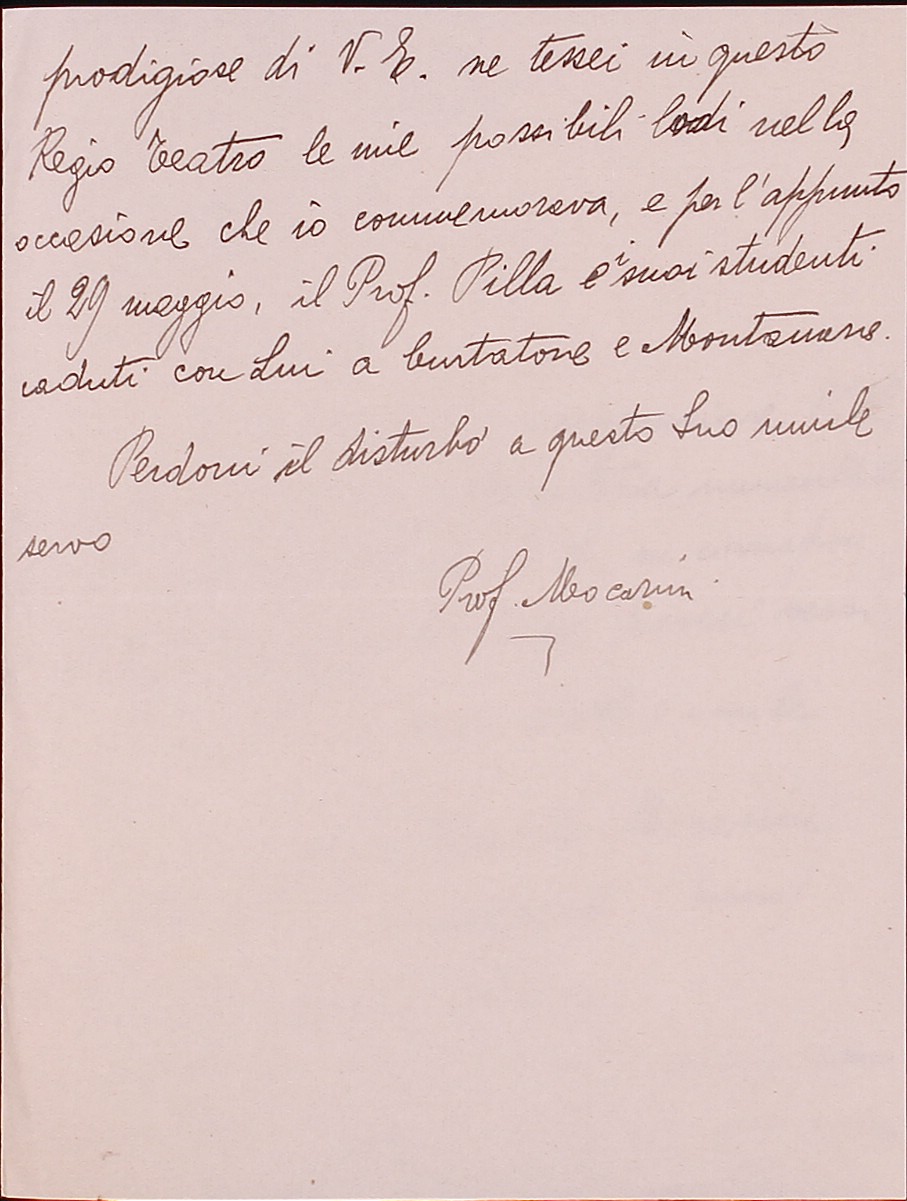 prodigiose di V. E. ne tessei in questo
Regio Teatro le mie possibili lodi nella
occasione che io commemorava, e per l'appunto
il 29 maggio, il Prof. Pilla e i suoi studenti
caduti con Lui a Curtatone e Montanara.
Perdoni il disturbo a questo Suo umile
servo
Prof. Mocarini